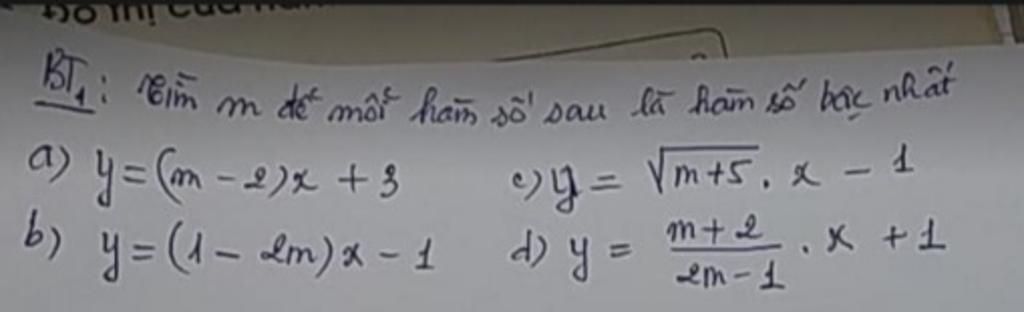 Đồ thị của hàm
BT1: Tìm m để mỗi hàm số sau là hàm số bậc nhất
a) y = (m - 2)x + 3
c) y = √(m+5) . x - 1
b) y = (1 - 2m)x - 1
d) y = (m+2)/(2m-1) . x + 1